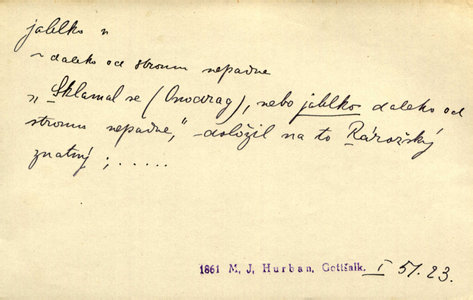 jablko n
~ daleko od stromu nepadne
„Sklamal se (Onodrag), nebo jablko daleko od
stromu nepadne," - doložil na to Rározský
znatný ; . . . . .
1861 M. J. Hurban, Gottšalk. I 51. 23.